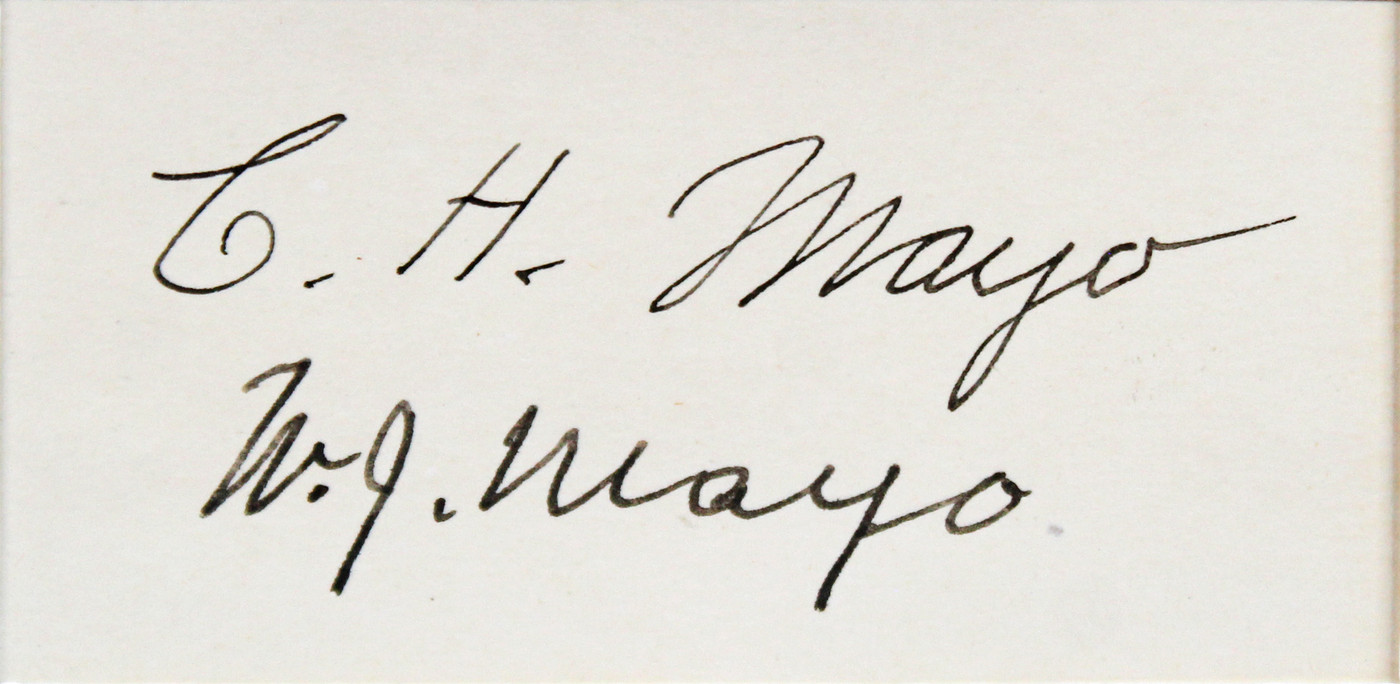 C. H. Mayo
W. J. Mayo